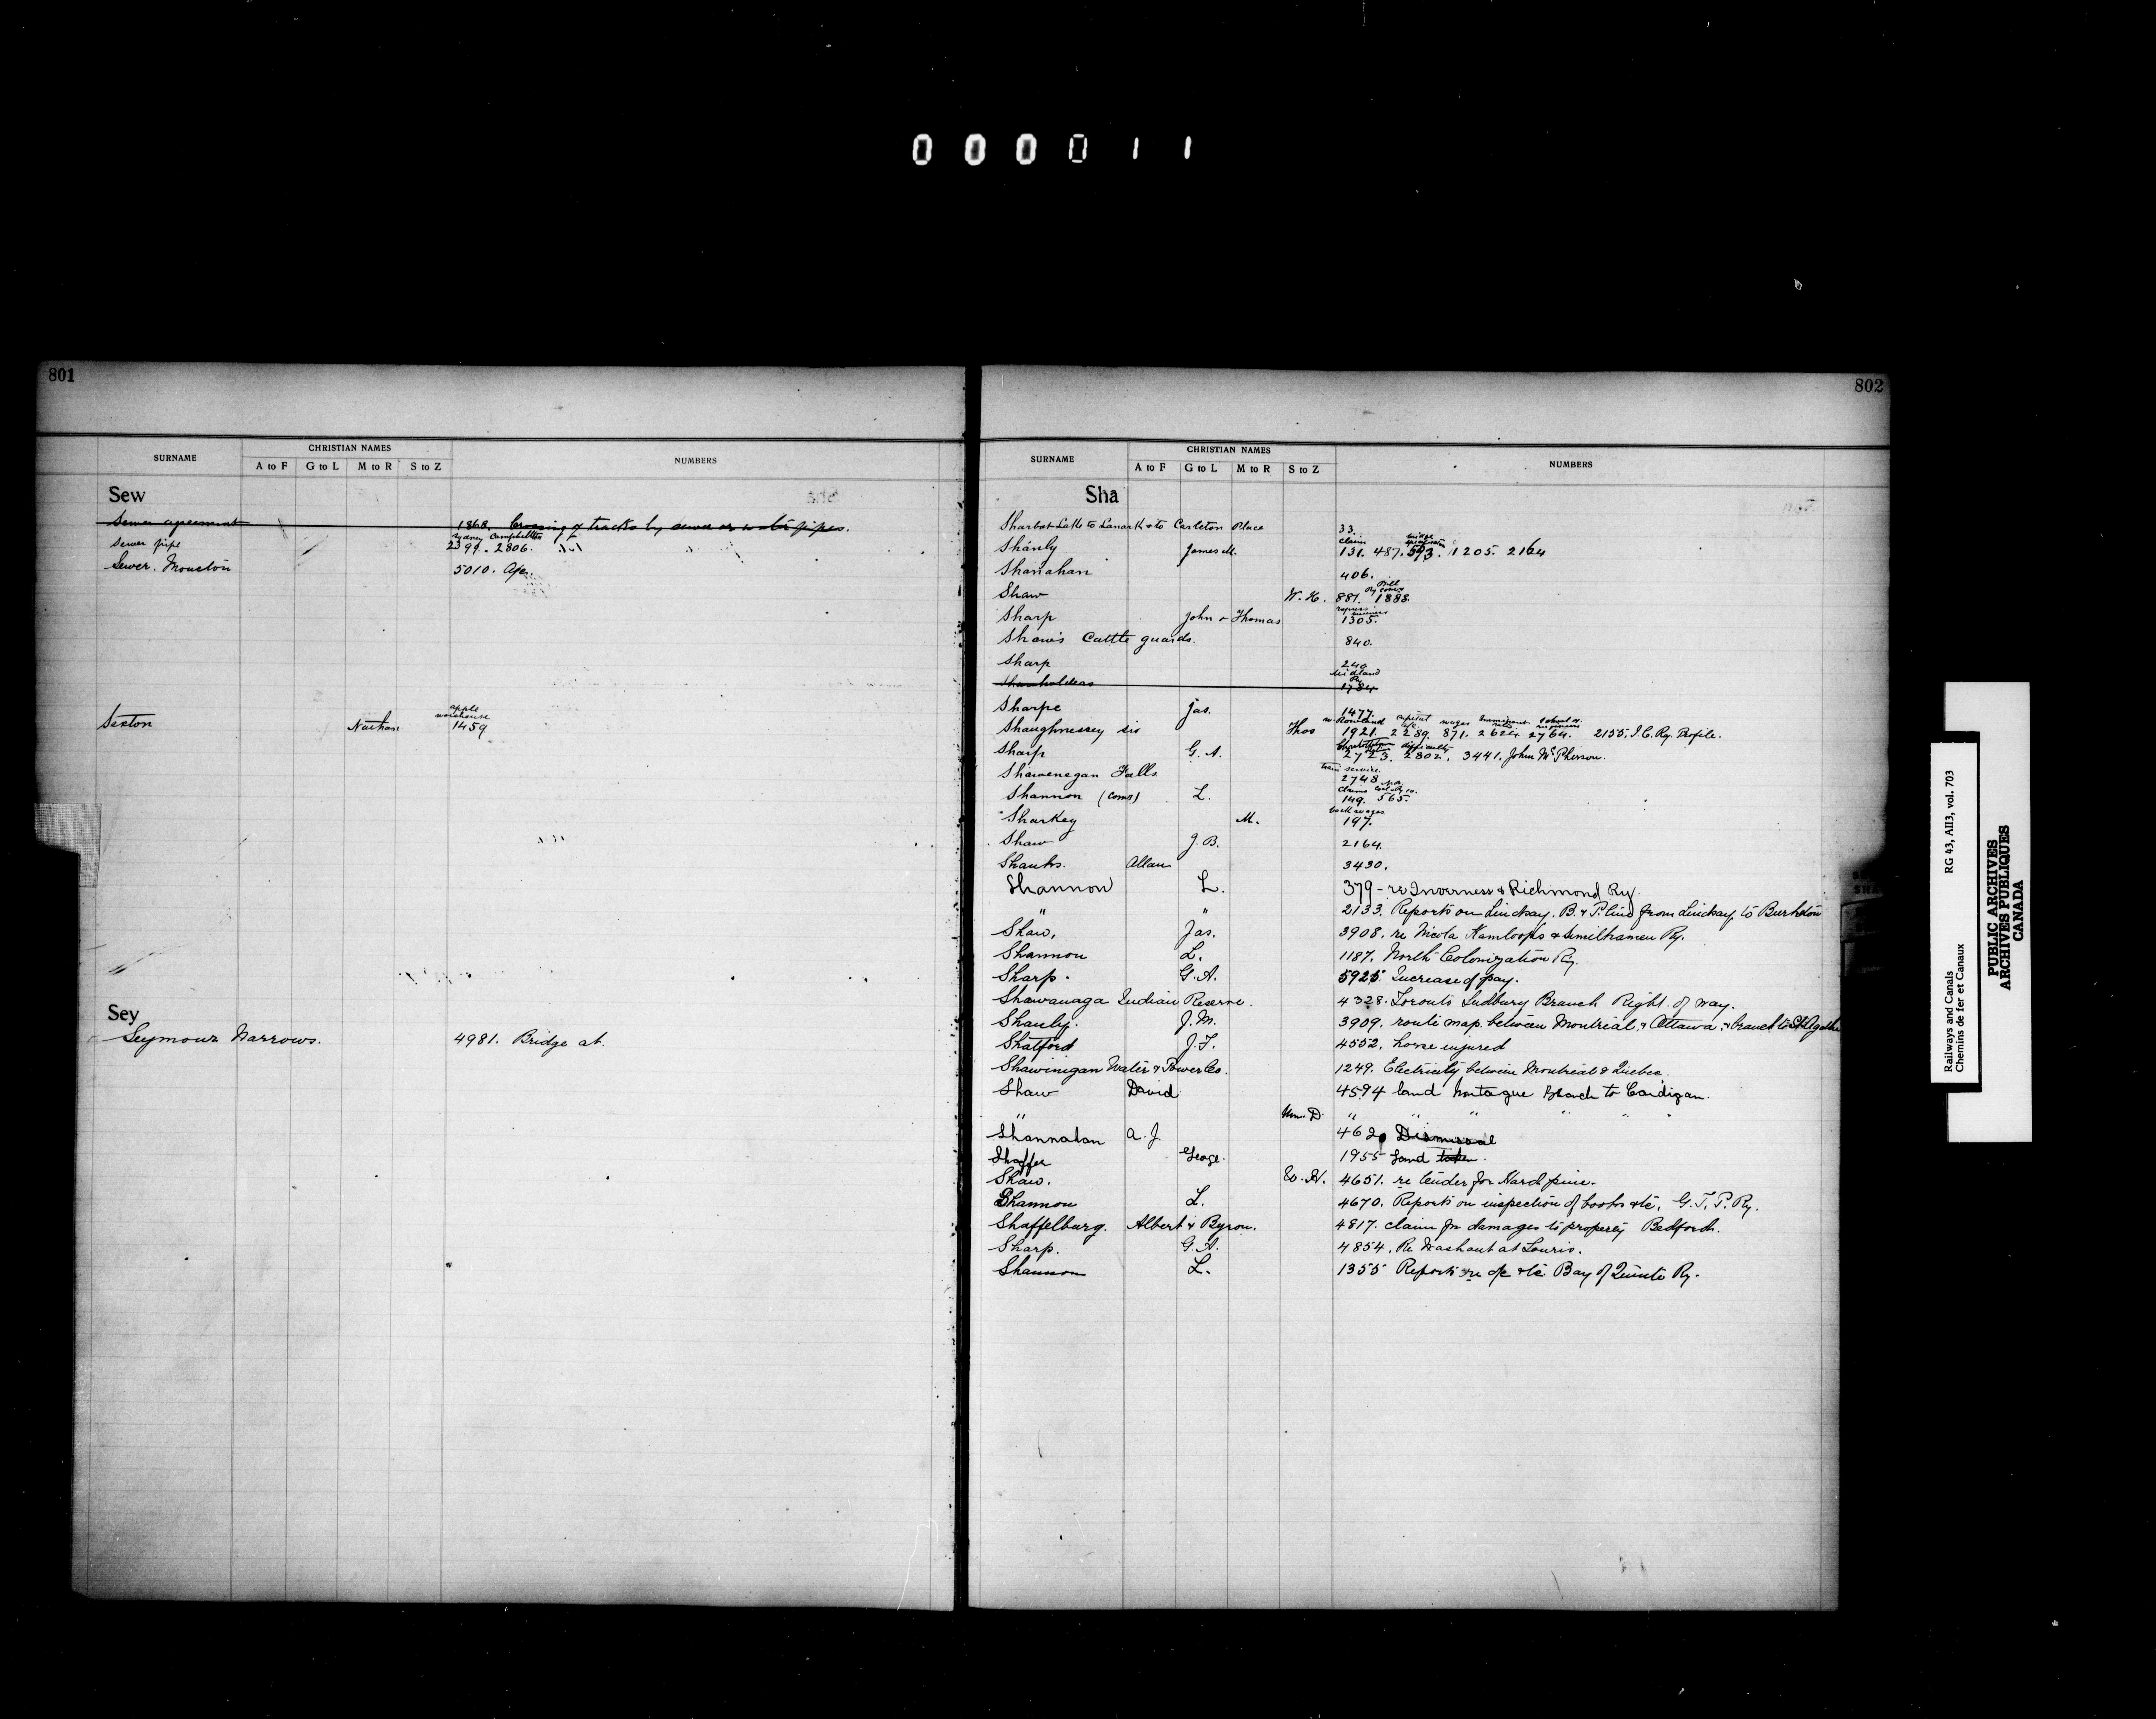 000011
801
SURNAME CHRISTIAN NAMES NUMBERS
A to F G to L M to R S to Z
Sew
Sewer agreement 1868. Crossing of tracks by sewer or water pipes.
Sydney Campbellton
Sewer pipe 2399. 2806.
Sewer. Moncton 5010.
apple warehouse
Sexton Nathan 1459
Sey
Seymour Narrows. 4981. Bridge at.
802
SURNAME CHRISTIAN NAMES NUMBERS
A to F G to L M to R S to Z
Sha
Sharbot Lake to Lanark & to Carleton Place 33.
claim
Shanly James M. 131. 487. 593. 1205. 2164
Shanahan 406.
Shaw W. H. 881. 1888.
Sharp John & Thomas 1305.
Shaw's Cattle guards. 840.
Sharp 240
Midland Ry
Shareholders 1784
Sharpe Jas. 1477.
capital wages
Shaughnessey sir Thos 1921. 2289. 871. 2624. 2764. 2155. I.C. Ry. Profile.
difficulty
Sharp G. A. 2723. 2802. 3441. John McPherson.
train service.
Shawenegan Falls 2748
claims
Shannon (Comr) L. 149. 565.
back wages
Sharkey M. 197.
Shaw J. B. 2164.
Shanks. Allan 3430.
Shannon L. 379 - re Inverness & Richmond Ry.
" " 2133. Reports on Lindsay. B. & P. line from Lindsay, to Burketon
Shaw, Jas. 3908. re Nicola Kamloops & Similkameen Ry.
Shannon L. 1187. North Colonization Ry.
Sharp. G. A. 5925 Increase of pay.
Shawanaga Indian Reserve. 4328. Toronto Sudbury Branch Right of way.
Shanly. J. M. 3909. route map between Montreal, & Ottawa, & branch to St Agathe
Shatford J. F. 4552. horse injured
Shawinigan Water & Power Co. 1249. Electricity between Montreal & Quebec.
Shaw David 4594 land Montague Branch to Cardigan.
" Wm. D. " " " " " "
Shannahan A. J. 4620 Dismissal
Shaffer George. 1955 Land taken.
Shaw. W. 4651. re tender for Hard pine.
Shannon L. 4670. Reports on inspection of books &tc. G. T. P. Ry.
Shaffelburg. Albert & Byron. 4817. claim for damages to property Bedford.
Sharp. G. A. 4854. Re Washout at Souris.
Shannon L. 1355 Reports re o/c &tc Bay of Quinte Ry.
Railways and Canals RG 43, AII3, vol. 703
Chemins de fer et Canaux
PUBLIC ARCHIVES
ARCHIVES PUBLIQUES
CANADA